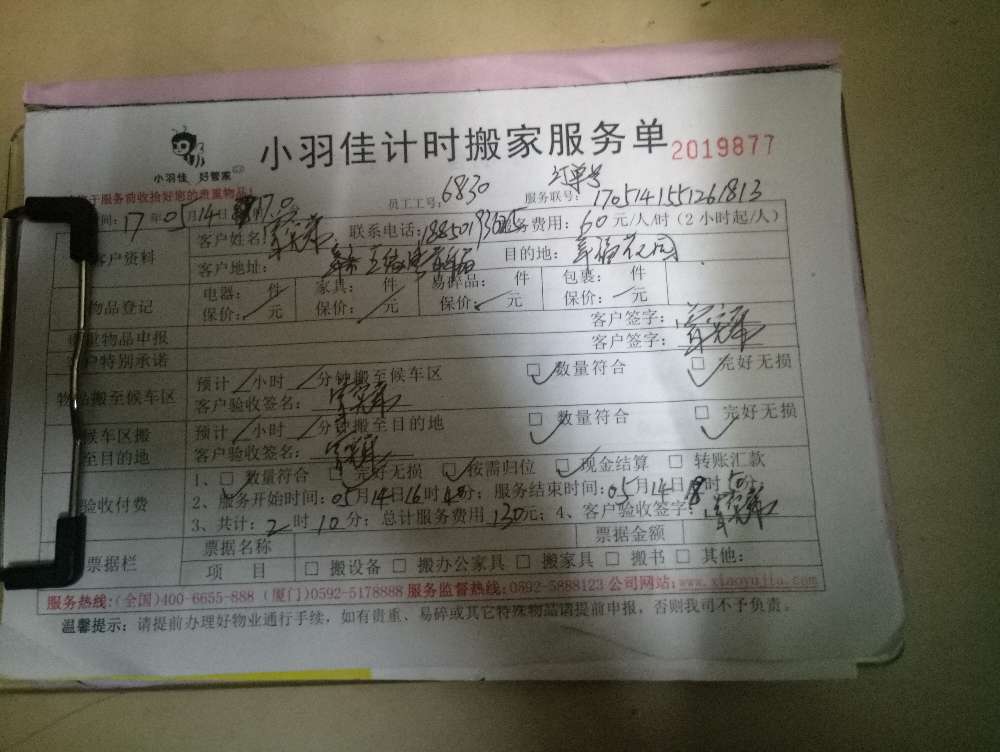 小羽佳计时搬家服务单 2019877
小羽佳 好管家
于服务前收拾好您的贵重物品!
订单号
员工工号: 6830 服务联号: 1705141551261813
间: 17年05月14日
客户资料 客户姓名: 联系电话: 服务费用: 60元/人/时(2小时起/人)
客户地址: 目的地: 幸福花园
物品登记 电器: 件 家具: 件 易碎品: 件 包裹: 件
保价: 元 保价: 元 保价: 元 保价: 元
客户签字:
物品申报 客户签字:
客户特别承诺
物品搬至候车区 预计 小时 分钟搬至候车区 □ 数量符合 □ 完好无损
客户验收签名:
候车区搬至目的地 预计 小时 分钟搬至目的地 □ 数量符合 □ 完好无损
客户验收签名:
验收付费 1、□ 数量符合 □ 完好无损 □ 按需归位 □ 现金结算 □ 转账汇款
2、服务开始时间: 05月14日16时40分; 服务结束时间: 05月14日 时50分;
3、共计: 2时10分; 总计服务费用130元; 4、客户验收签字:
票据栏 票据名称 票据金额
项 目 □ 搬设备 □ 搬办公家具 □ 搬家具 □ 搬书 □ 其他:
服务热线:(全国)400-6655-888 (厦门)0592-5178888 服务监督热线:0592-5888123 公司网站:www.xiaoyujia.com
温馨提示: 请提前办理好物业通行手续,如有贵重、易碎或其它特殊物品请提前申报,否则我司不予负责。